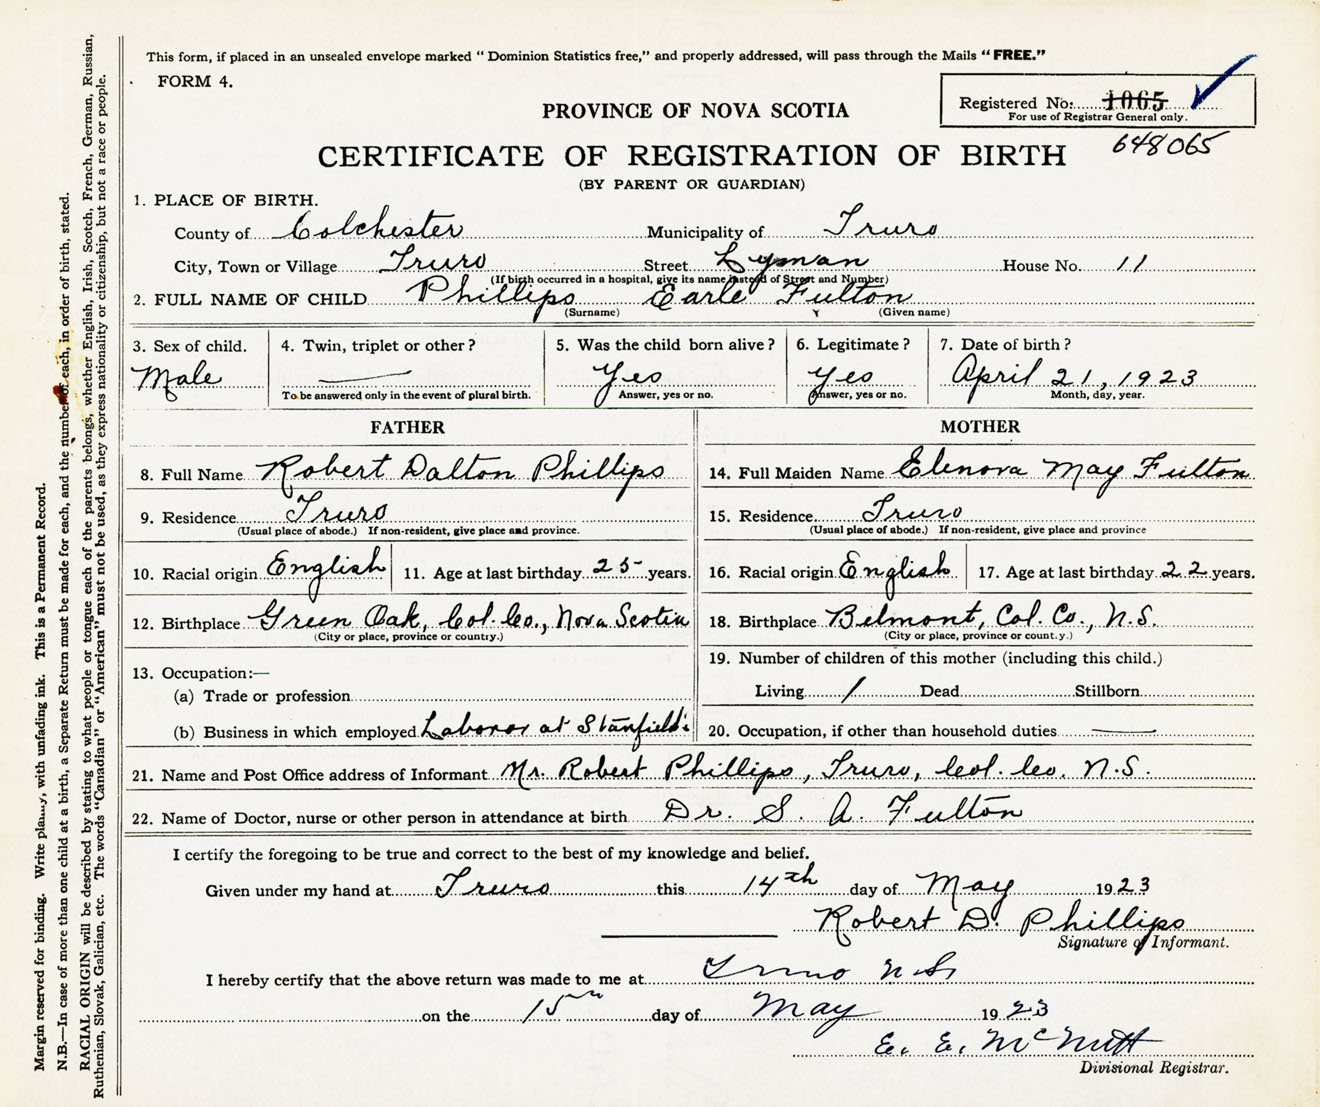 This form, if placed in an unsealed envelope marked "Dominion Statistics free," and properly addressed, will pass through the Mails "FREE."
FORM 4.
Registered No: 1065
For use of Registrar General only.
648065
PROVINCE OF NOVA SCOTIA
CERTIFICATE OF REGISTRATION OF BIRTH
(BY PARENT OR GUARDIAN)
1. PLACE OF BIRTH.
County of Colchester Municipality of Truro
City, Town or Village Truro Street Lyman House No. 11
(If birth occurred in a hospital, give its name instead of Street and Number)
2. FULL NAME OF CHILD Phillips Earle Fulton
(Surname) (Given name)
3. Sex of child. 4. Twin, triplet or other? 5. Was the child born alive? 6. Legitimate? 7. Date of birth?
Male — Yes Yes April 21, 1923
To be answered only in the event of plural birth. Answer, yes or no. Answer, yes or no. Month, day, year.
FATHER MOTHER
8. Full Name Robert Dalton Phillips 14. Full Maiden Name Elenora May Fulton
9. Residence Truro 15. Residence Truro
(Usual place of abode.) If non-resident, give place and province. (Usual place of abode.) If non-resident, give place and province
10. Racial origin English 11. Age at last birthday 25 years. 16. Racial origin English 17. Age at last birthday 22 years.
12. Birthplace Green Oak, Col. Co., Nova Scotia 18. Birthplace Belmont, Col. Co., N.S.
(City or place, province or country.) (City or place, province or country.)
13. Occupation:— 19. Number of children of this mother (including this child.)
(a) Trade or profession Living 1 Dead Stillborn
(b) Business in which employed Laborer at Stanfield's 20. Occupation, if other than household duties —
21. Name and Post Office address of Informant Mr. Robert Phillips, Truro, Col. Co. N.S.
22. Name of Doctor, nurse or other person in attendance at birth Dr. S. A. Fulton
I certify the foregoing to be true and correct to the best of my knowledge and belief.
Given under my hand at Truro this 14th day of May 1923
Robert D. Phillips
Signature of Informant.
I hereby certify that the above return was made to me at Truro N.S.
on the 15th day of May 1923
E. E. McNutt
Divisional Registrar.
Margin reserved for binding. Write plainly, with unfading ink. This is a Permanent Record.
N.B.—In case of more than one child at a birth, a Separate Return must be made for each, and the number of each, in order of birth, stated.
RACIAL ORIGIN will be described by stating to what people or tongue each of the parents belongs, whether English, Irish, Scotch, French, German, Russian,
Ruthenian, Slovak, Galician, etc. The words "Canadian" or "American" must not be used, as they express nationality or citizenship, but not a race or people.